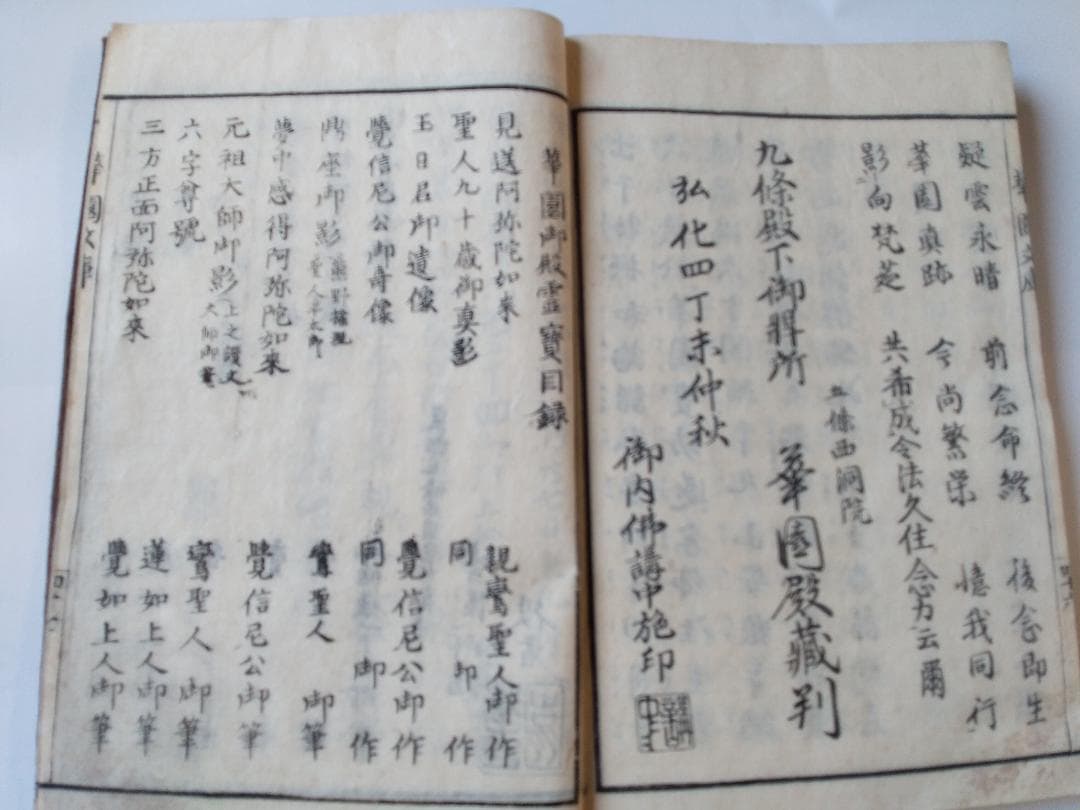 疑雲永晴 前念命終 後念即生
華園真跡 今尚繁栄 憶我同行
影向梵筵 共希成令法久住念力云爾
五條西洞院
九條殿下御牌所 華園殿蔵判
弘化四丁未仲秋
御内佛講中施印
華園御殿霊寶目録
見送阿弥陀如来 親鸞聖人御作
聖人九十歳御真影 同 御作
玉日君御遺像 覺信尼公御作
覺信尼公御寿像 同 御作
御座御影 鸞聖人 御筆
夢中感得阿弥陀如来 覺信尼公御筆
元祖大師御影 上之讃文 大師御筆 鸞聖人 御筆
六字尊號 蓮如上人御筆
三方正面阿弥陀如来 覺如上人御筆